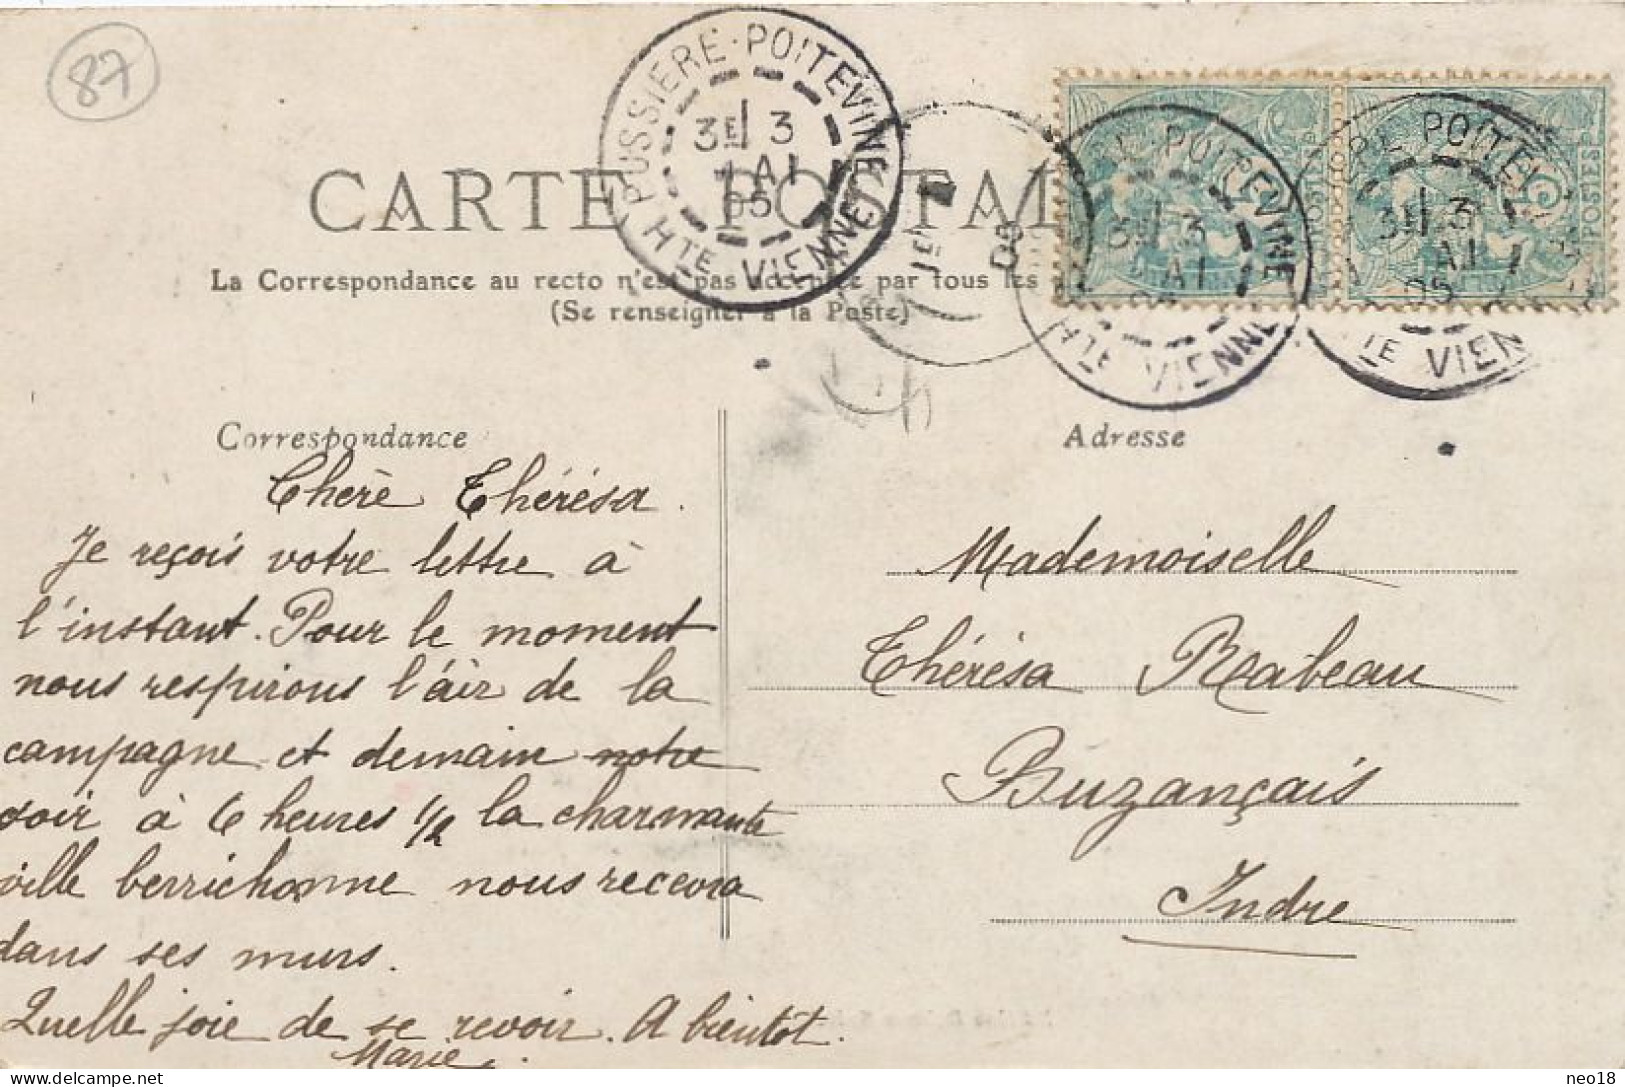 87
BUSSIERE-POITEVINE
3E 3
MAI
05
HTE VIENNE
CARTE POSTALE
La Correspondance au recto n'est pas acceptée par tous les
(Se renseigner à la Poste)
POITEVINE
3E 3
AI
05
HTE VIENNE
POITEVI
3E 3
AI
05
TE VIENN
5
POSTES
Correspondance
Chère Thérésa.
Je reçois votre lettre à
l'instant. Pour le moment
nous respirons l'air de la
campagne et demain notre
soir à 6 heures 1/2 la charmante
ville berrichonne nous recevra
dans ses murs.
Quelle joie de se revoir. A bientôt.
Marie
Adresse
Mademoiselle
Thérésa Rabeau
Buzançais
Indre
neo18